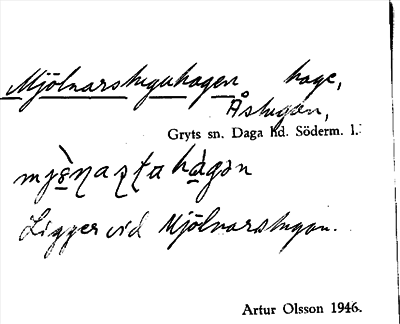 Mjölnarstuguhagen hage,
Åstugan,
Gryts sn. Daga hd. Söderm. l.
Ligger vid Mjölnarstugan.
Artur Olsson 1946.